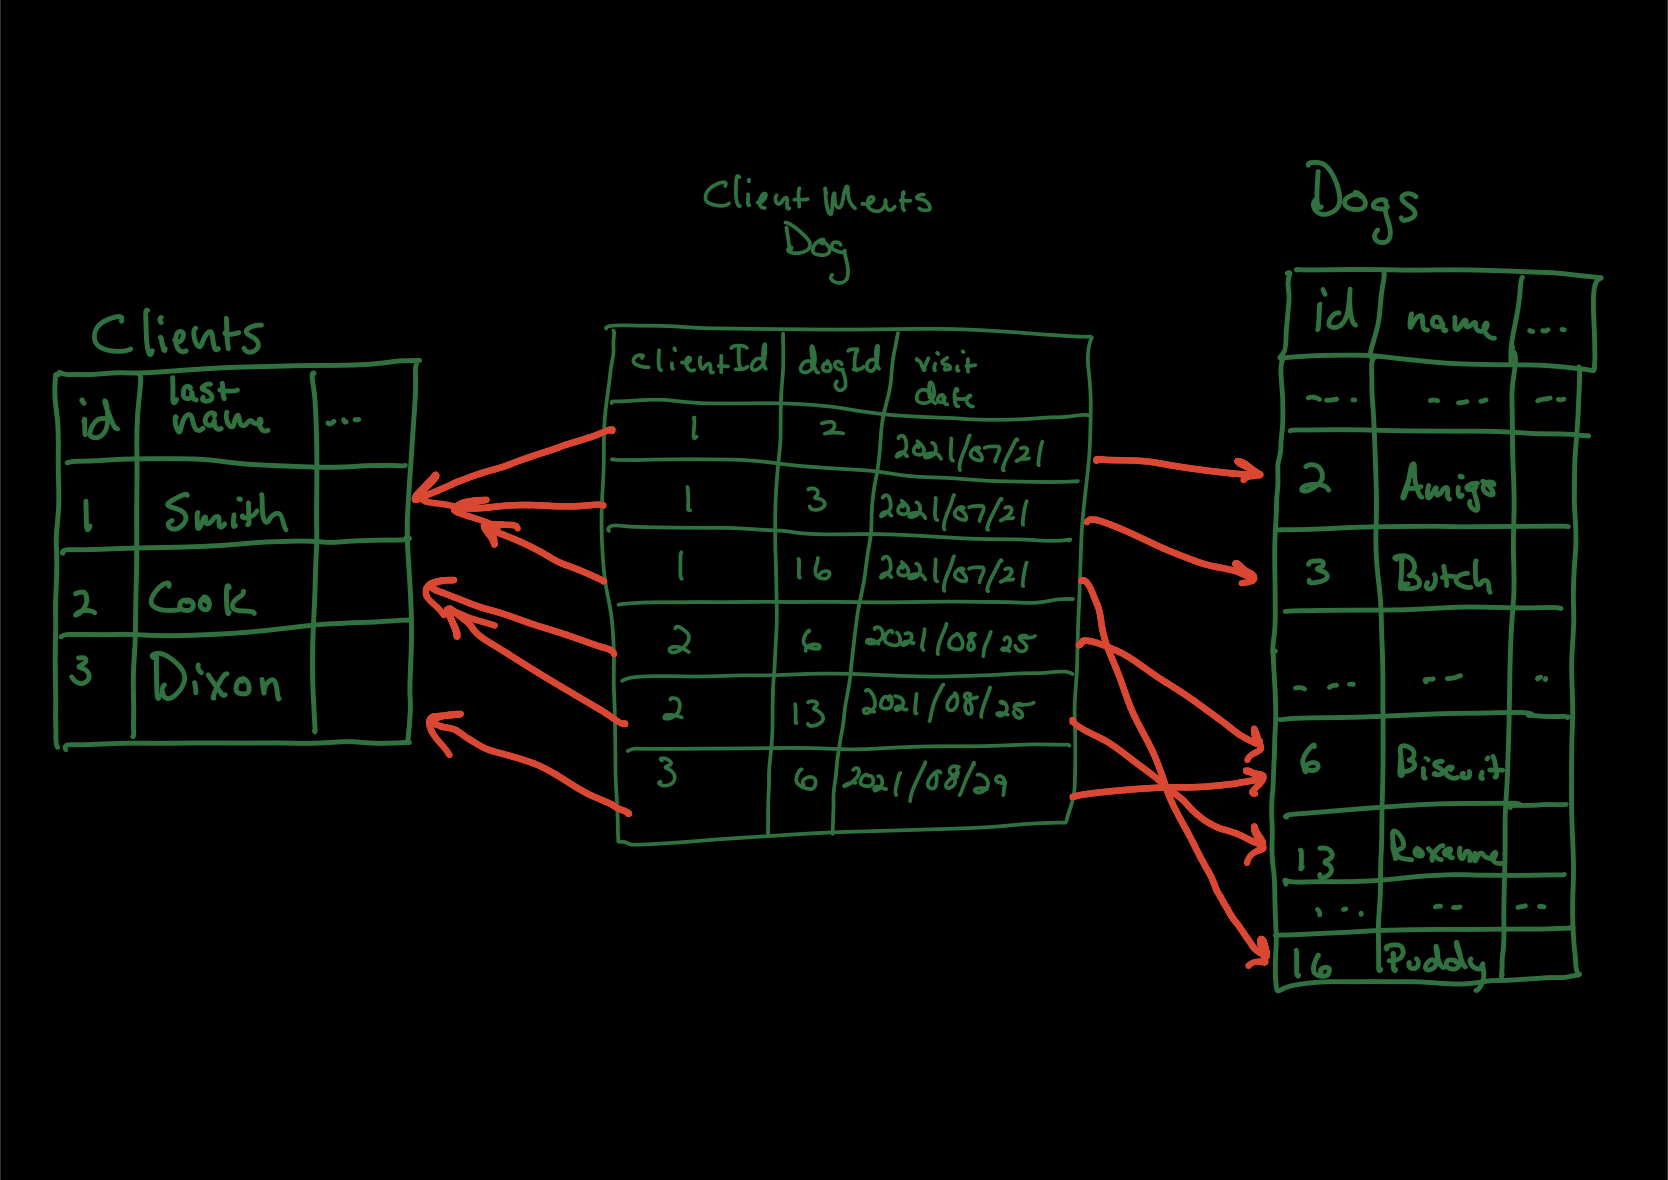 Clients
id last name ....
1 Smith
2 Cook
3 Dixon
Client Meets
Dog
clientId dogId visit date
1 2 2021/07/21
1 3 2021/07/21
1 16 2021/07/21
2 6 2021/08/25
2 13 2021/08/25
3 6 2021/08/29
Dogs
id name ....
---- --- --
2 Amigo
3 Butch
---- -- ..
6 Biscuit
13 Roxanne
... -- --
16 Puddy